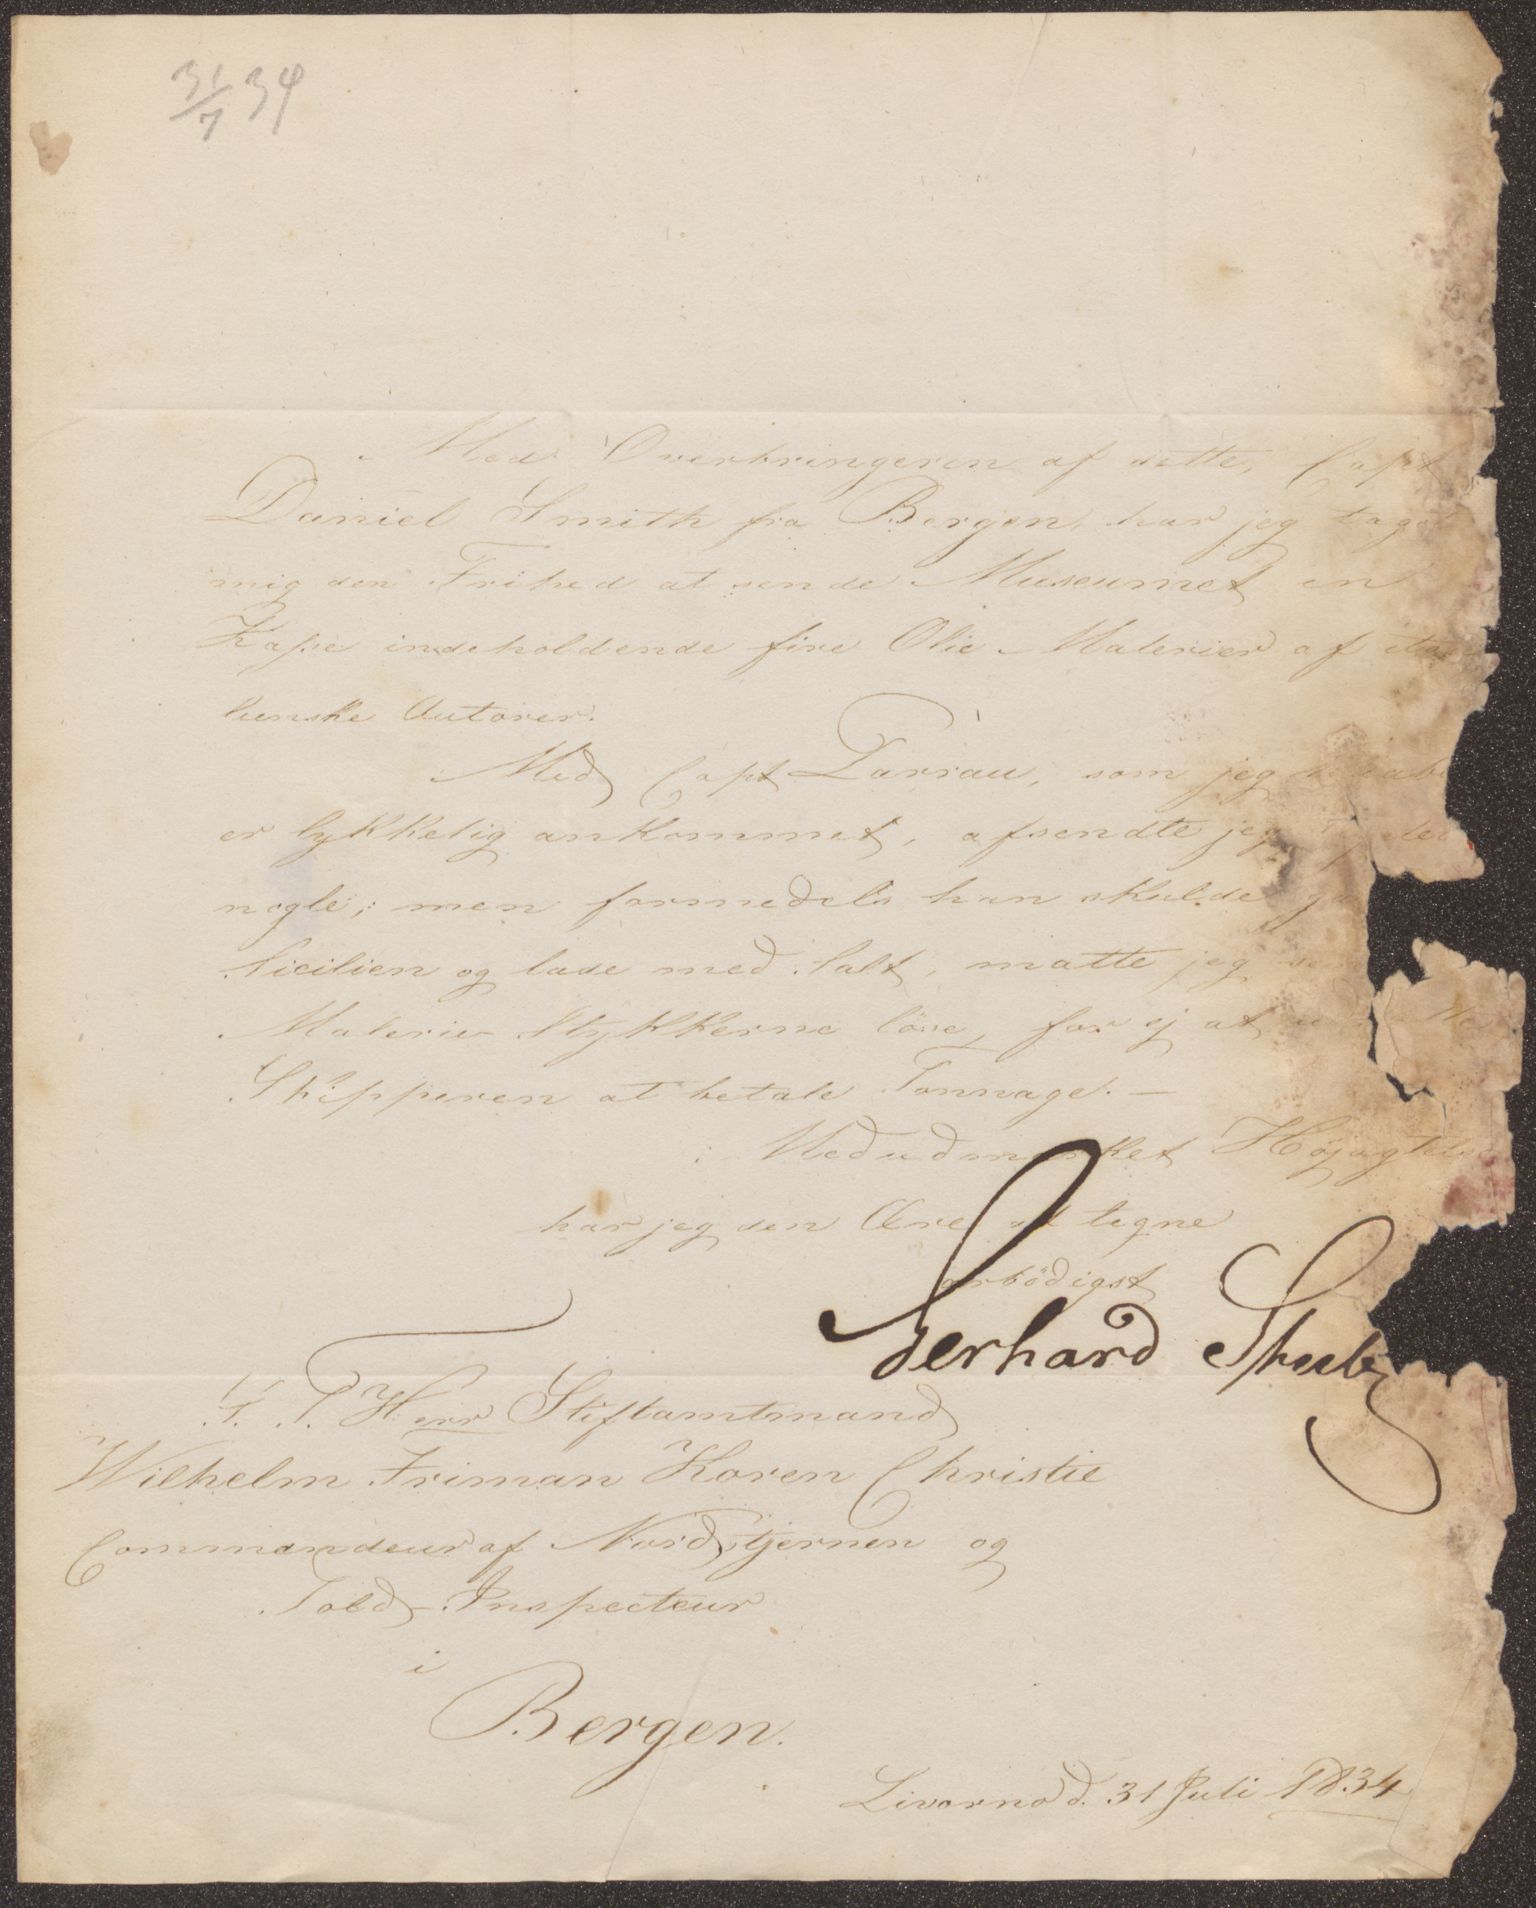 31/7 34
Med Overbringeren af dette, Capt
Daniel Smith fra Bergen, har jeg taget
mig den Frihed at sende Museumet en
Kasse indeholdende fire Olie Malerier af ita
lienske Autorer.
Med Capt Tarrau, som jeg
er lykkelig ankommet, afsendte jeg
nogle; men formedels han skulde
Sicilien og lade med Salt, matte jeg
Malerie Stykkerne löse, for ej at
Skipperen at betale Tonnage. —
Med udmærket Højagtels
har jeg den Ære at tegne
ærbödigst
Gerhard Stub
S. T. Herr Stiftamtmand
Wilhelm Friman Koren Christie
Commandeur af Nordstjernen og
Told-Inspecteur
i
Bergen.
Livorno d. 31 Juli 1834